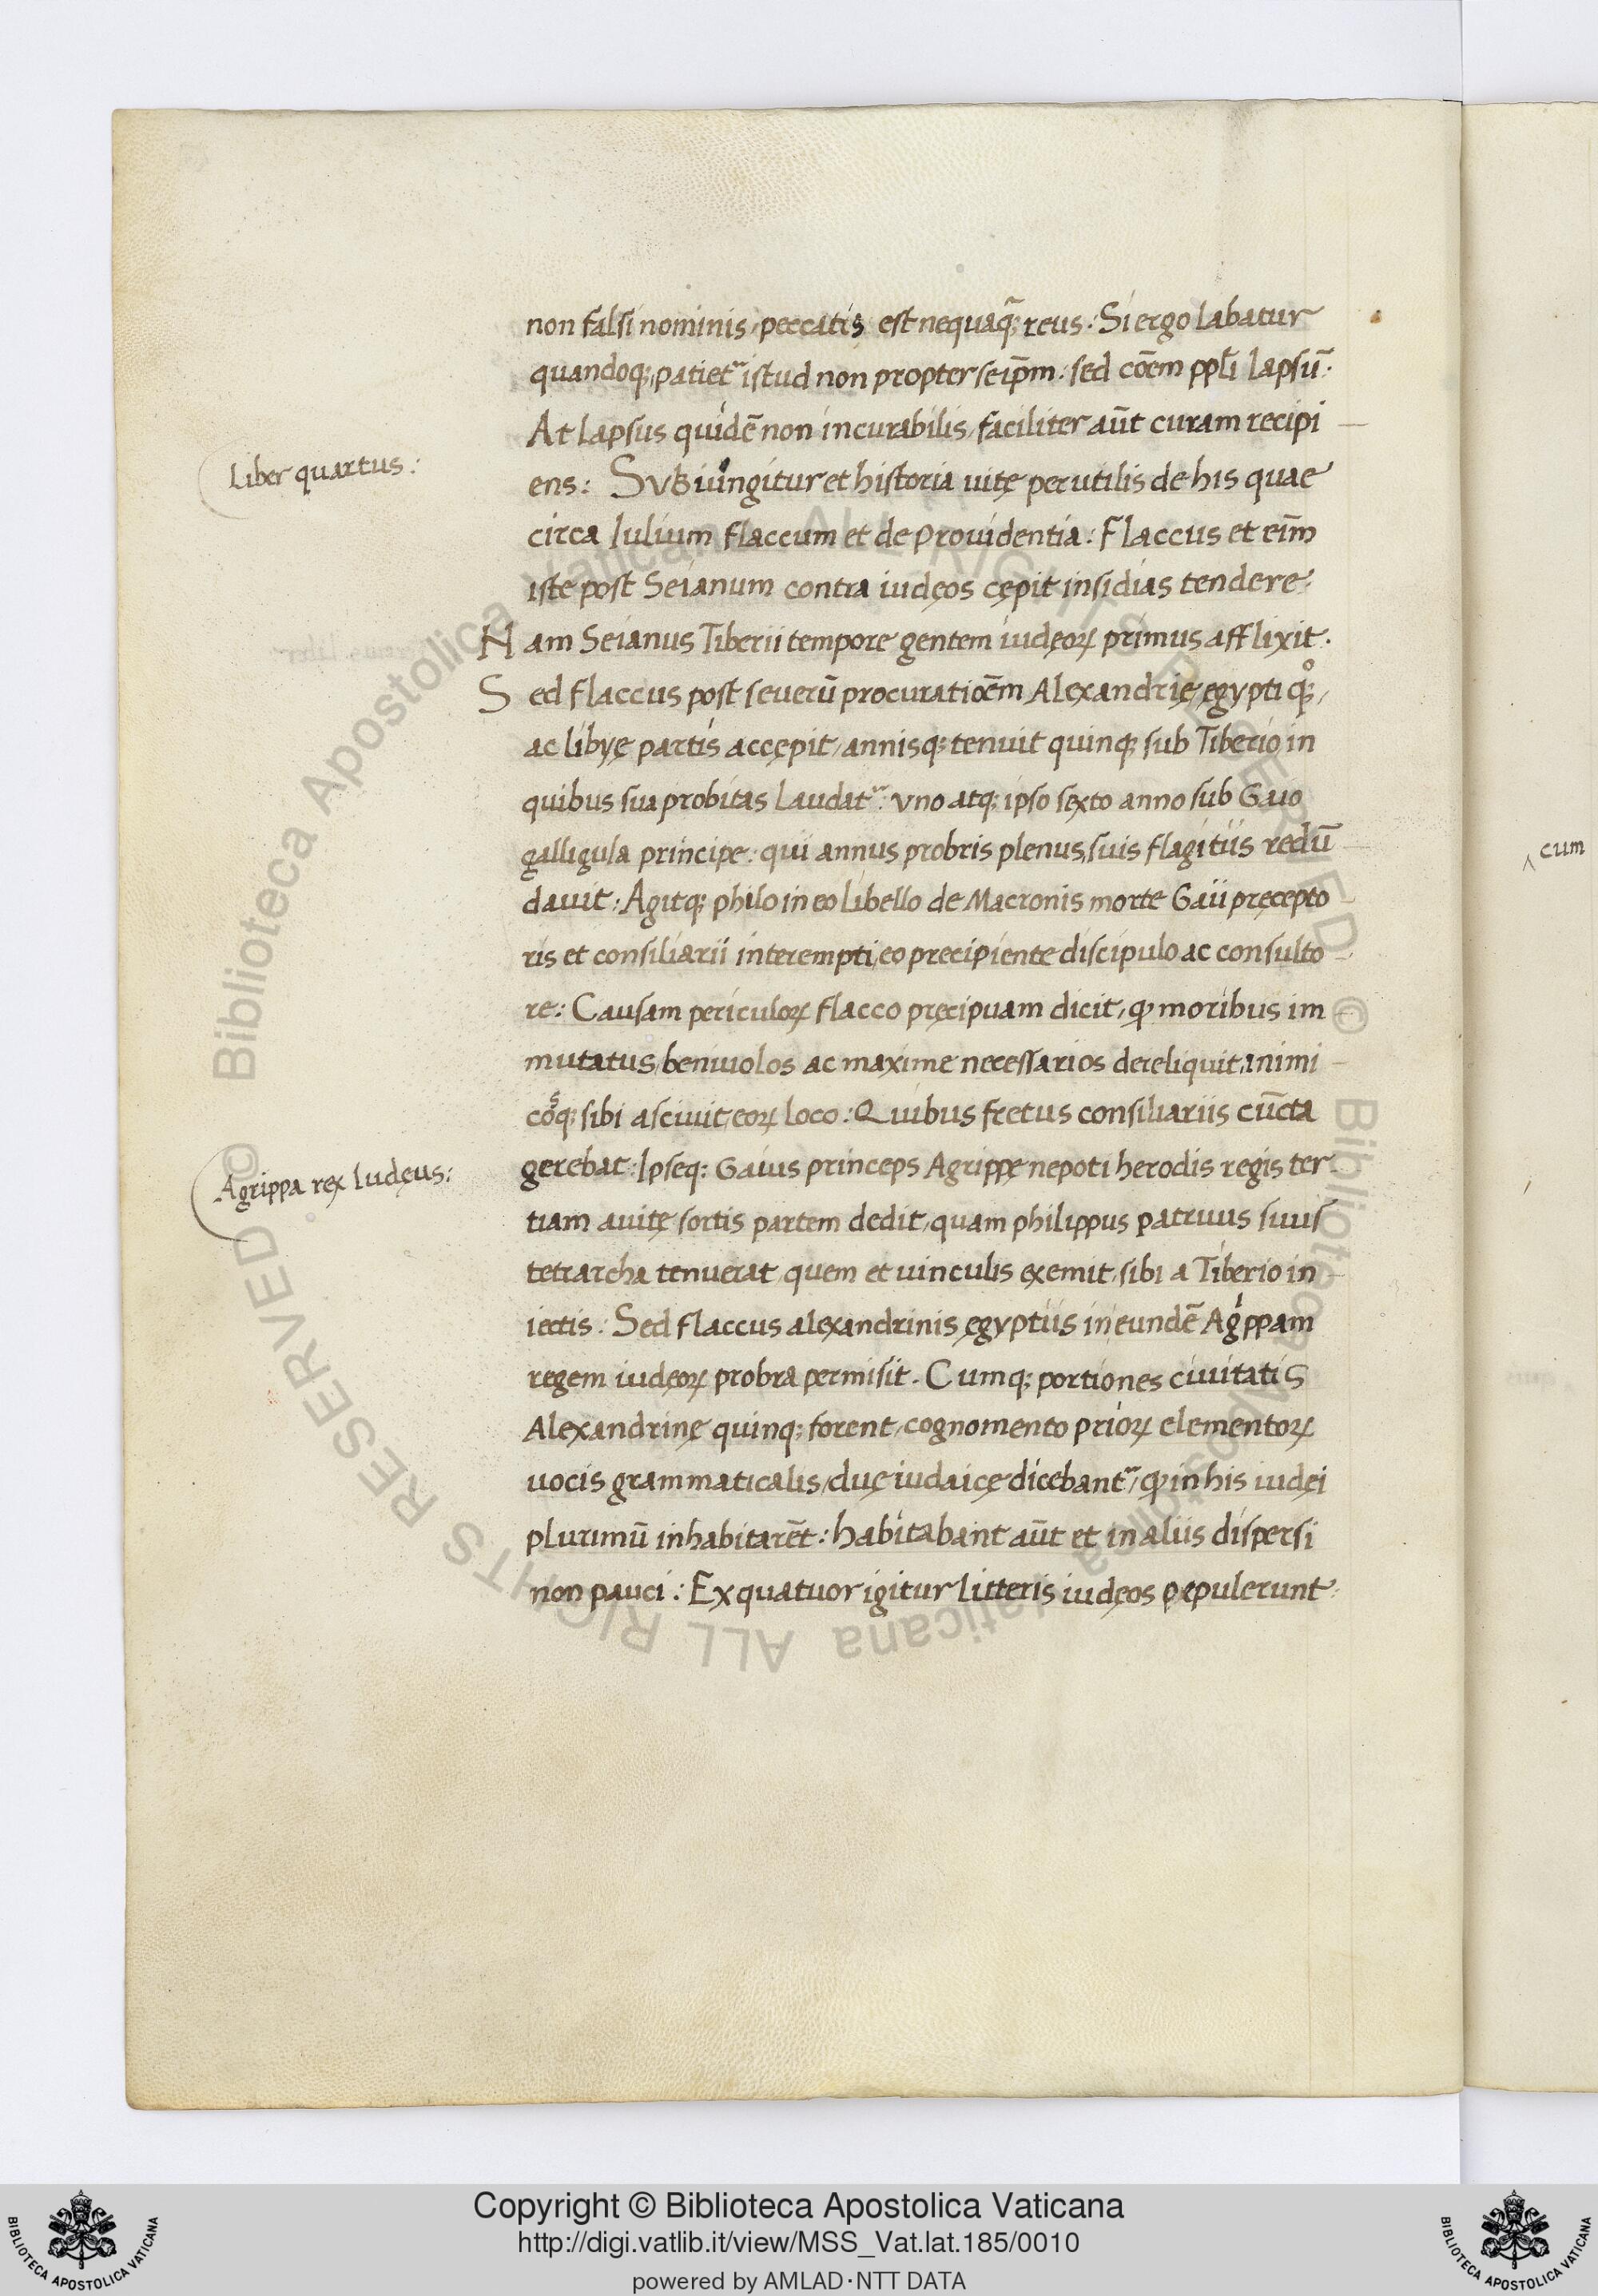 non falsi nominis, peccatis est nequaq̃; reus: Si ergo labatur
quandoq;, patiet̃ istud non propter seip̃m: sed cõem ppl̃i lapsũ:
At lapsus quidẽ non incurabilis, faciliter aũt curam recipi
Liber quartus:
ens: Subiungitur et historia uitę perutilis de his quae
circa Iulium flaccum et de providentia: Flaccus et eĩm
iste post Seianum contra iudęos cępit insidias tendere:
Nam Seianus Tiberii tempore gentem iudęoꝝ primus afflixit.
Sed flaccus post seuerũ procuratioẽm Alexandrię, egypti q°;,
ac libyę partis accępit, annisq; tenuit quinq; sub Tiberio, in
quibus sua probitas laudat̃: vno atq; ipso sexto anno sub Gaio
galligula principe: qui annus probris plenus, suis flagitiis redũ
dauit: Agitq; philo in eo libello de Macronis morte Gaii pręcepto
ris et consiliarii interempti, eo precipiente discipulo ac consulto
re: Causam periculoꝝ flacco pręcipuam dicit, ꝙ moribus im
mutatus, beniuolos ac maxime necessarios dereliquit, inimi
cosq; sibi asciuit, eoꝝ loco: Quibus fretus consiliariis cũcta
gerebat: Ipseq: Gaius princeps Agrippę nepoti herodis regis ter
Agrippa rex Iudęus:
tiam auitę sortis partem dedit, quam philippus patruus suus
tetrarcha tenuerat, quem et uinculis exemit, sibi a Tiberio in
iectis: Sed flaccus alexandrinis ęgyptiis in eundẽ Agppam
regem iudęoꝝ probra permisit. Cumq; portiones ciuitatis
Alexandrinę quinq; forent, cognomento prioꝝ elementoꝝ
uocis grammaticalis, duę iudaicę dicebant̃, ꝙ in his iudęi
plurimũ inhabitarẽt: habitabant aũt et in aliis dispersi
non pauci: Ex quatuor igitur litteris iudęos pepulerunt:
cum
Copyright © Biblioteca Apostolica Vaticana
http://digi.vatlib.it/view/MSS_Vat.lat.185/0010
powered by AMLAD·NTT DATA
BIBLIOTECA APOSTOLICA VATICANA
BIBLIOTECA APOSTOLICA VATICANA
© Biblioteca Apostolica Vaticana ALL RIGHTS RESERVED
© Biblioteca Apostolica Vaticana ALL RIGHTS RESERVED